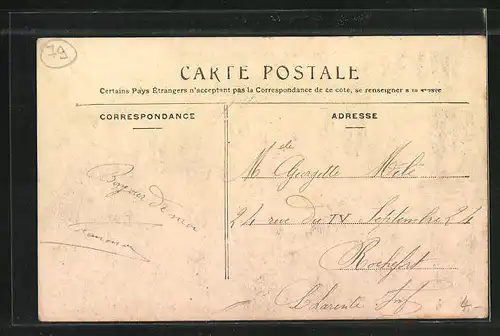 79
CARTE POSTALE
Certains Pays Étrangers n'acceptant pas la Correspondance de ce côté, se renseigner à la Poste
CORRESPONDANCE
ADRESSE
Bonjour de moi
Mlle Georgette
24 rue du IV Septembre 24
Rochefort
Charente Inf
4